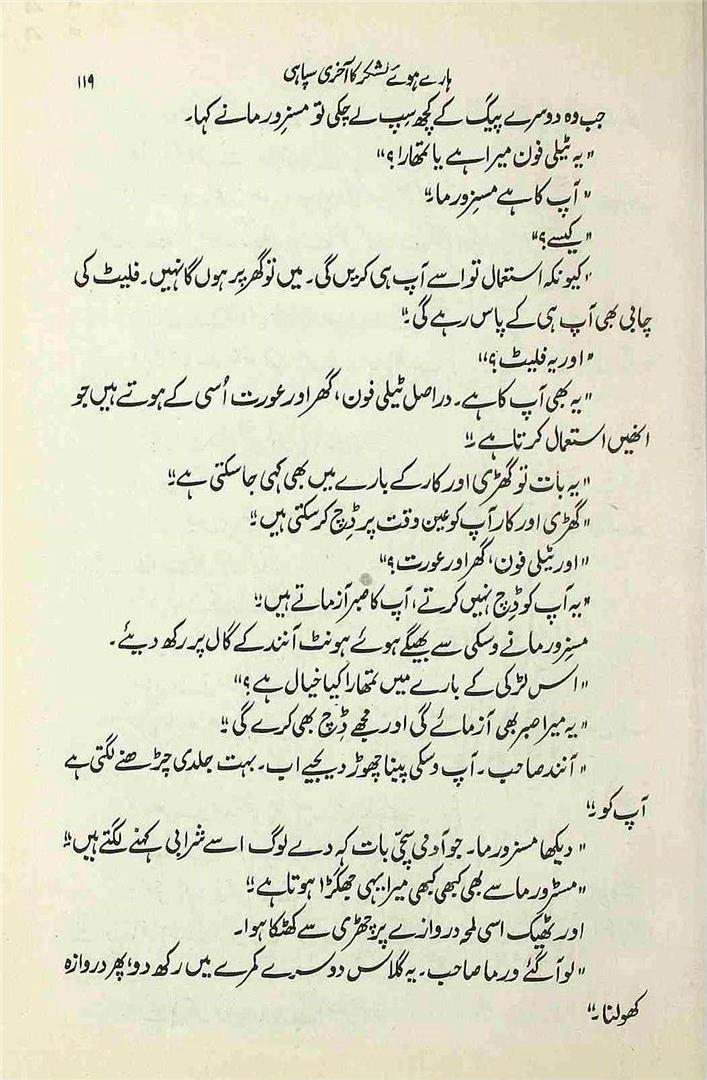 ہارے ہوئے لشکر کا آخری سپاہی ۱۱۹
جب وہ دوسرے پیگ کے کچھ سِپ لے چکی تو مسز ورما نے کہا۔
"یہ ٹیلی فون میرا ہے یا تمھارا؟"
"آپ کا ہے مسز ورما۔"
"کیسے؟"
"کیونکہ استعمال تو اسے آپ ہی کریں گی۔ میں تو گھر پر ہوں گا نہیں۔ فلیٹ کی
چابی بھی آپ ہی کے پاس رہے گی۔"
"اور یہ فلیٹ؟"
"یہ بھی آپ کا ہے۔ دراصل ٹیلی فون، گھر اور عورت اُسی کے ہوتے ہیں جو
انھیں استعمال کرتا ہے۔"
"یہ بات تو گھڑی اور کار کے بارے میں بھی کہی جا سکتی ہے۔"
"گھڑی اور کار آپ کو عین وقت پر ڈِچ کر سکتی ہیں۔"
"اور ٹیلی فون، گھر اور عورت؟"
"یہ آپ کو ڈِچ نہیں کرتے، آپ کا صبر آزماتے ہیں۔"
مسز ورما نے وسکی سے بھیگے ہوئے ہونٹ آنند کے گال پر رکھ دیئے۔
"اس لڑکی کے بارے میں تمھارا کیا خیال ہے؟"
"یہ میرا صبر بھی آزمائے گی اور مجھے ڈِچ بھی کرے گی۔"
"آنند صاحب۔ آپ وسکی پینا چھوڑ دیجیے اب۔ بہت جلدی چڑھنے لگتی ہے
آپ کو۔"
"دیکھا مسز ورما۔ جو آدمی سچّی بات کہہ دے لوگ اسے شرابی کہنے لگتے ہیں۔"
"مسٹر ورما سے بھی کبھی کبھی میرا یہی جھگڑا ہوتا ہے۔"
اور ٹھیک اسی لمحہ دروازے پر چھڑی سے کھٹکا ہوا۔
"لو آگئے ورما صاحب۔ یہ گلاس دوسرے کمرے میں رکھ دو، پھر دروازہ
کھولنا۔"